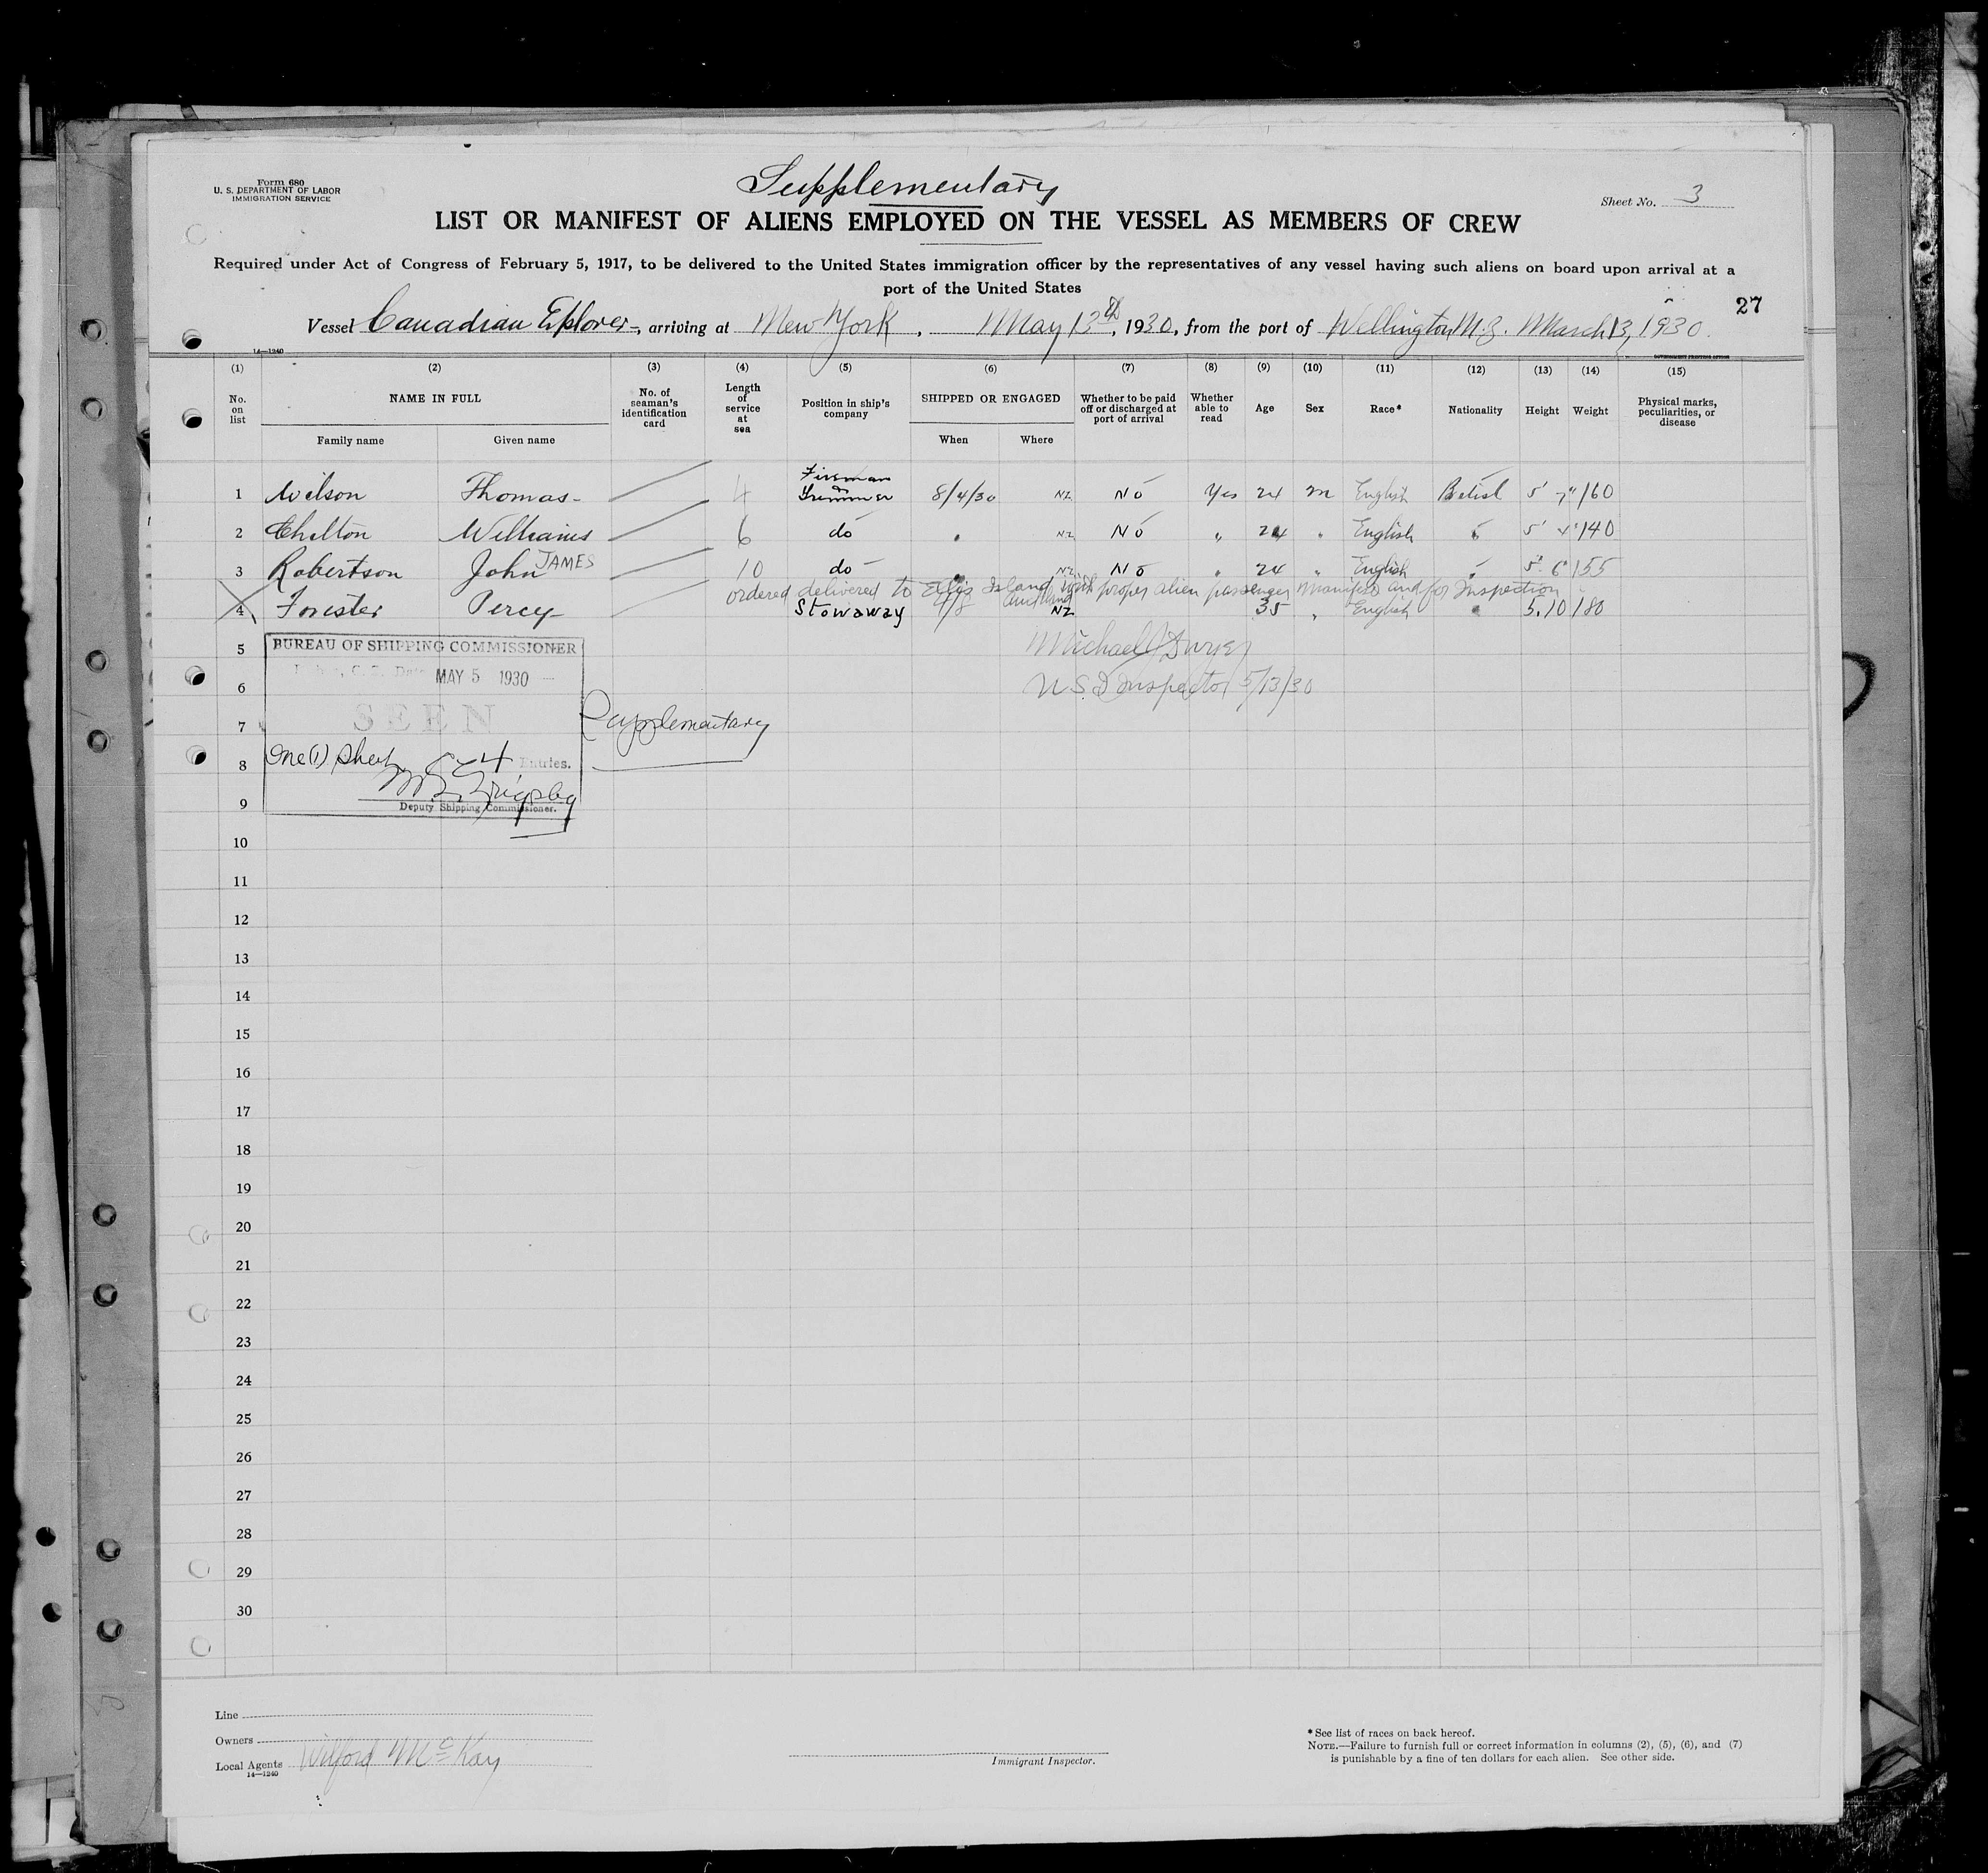 Form 680
U. S. DEPARTMENT OF LABOR
IMMIGRATION SERVICE
Supplementary
Sheet No. 3
LIST OR MANIFEST OF ALIENS EMPLOYED ON THE VESSEL AS MEMBERS OF CREW
Required under Act of Congress of February 5, 1917, to be delivered to the United States immigration officer by the representatives of any vessel having such aliens on board upon arrival at a
port of the United States
27
Vessel Canadian Explorer, arriving at New York, May 13th, 1930, from the port of Wellington N.Z. March 13, 1930.
14—1240
GOVERNMENT PRINTING OFFICE
(1) (2) (3) (4) (5) (6) (7) (8) (9) (10) (11) (12) (13) (14) (15)
No. on list NAME IN FULL No. of seaman's identification card Length of service at sea Position in ship's company SHIPPED OR ENGAGED Whether to be paid off or discharged at port of arrival Whether able to read Age Sex Race* Nationality Height Weight Physical marks, peculiarities, or disease
Family name Given name When Where
1 Wilson Thomas 4 Fireman & Trimmer 8/4/30 NZ No Yes 24 m English British 5' 7" 160
2 Chilton Williams 6 do " NZ No " 24 " English " 5' 4" 140
3 Robertson John JAMES 10 do " NZ No " 24 " English " 5' 6" 155
ordered delivered to Ellis Island with proper alien passenger manifest and for Inspection
4 Forister Percy Stowaway 4/8 Auckland NZ 35 " English " 5.10 180
5 Michael J Dwyer
6 U S I Inspector 5/13/30
BUREAU OF SHIPPING COMMISSIONER
MAY 5 1930
SEEN
7 Supplementary
8 One (1) Sheet 4 Entries.
9 Deputy Shipping Commissioner.
10
11
12
13
14
15
16
17
18
19
20
21
22
23
24
25
26
27
28
29
30
Line
Owners
Local Agents Wilford & McKay
14—1240
Immigrant Inspector.
* See list of races on back hereof.
NOTE.—Failure to furnish full or correct information in columns (2), (5), (6), and (7)
is punishable by a fine of ten dollars for each alien. See other side.